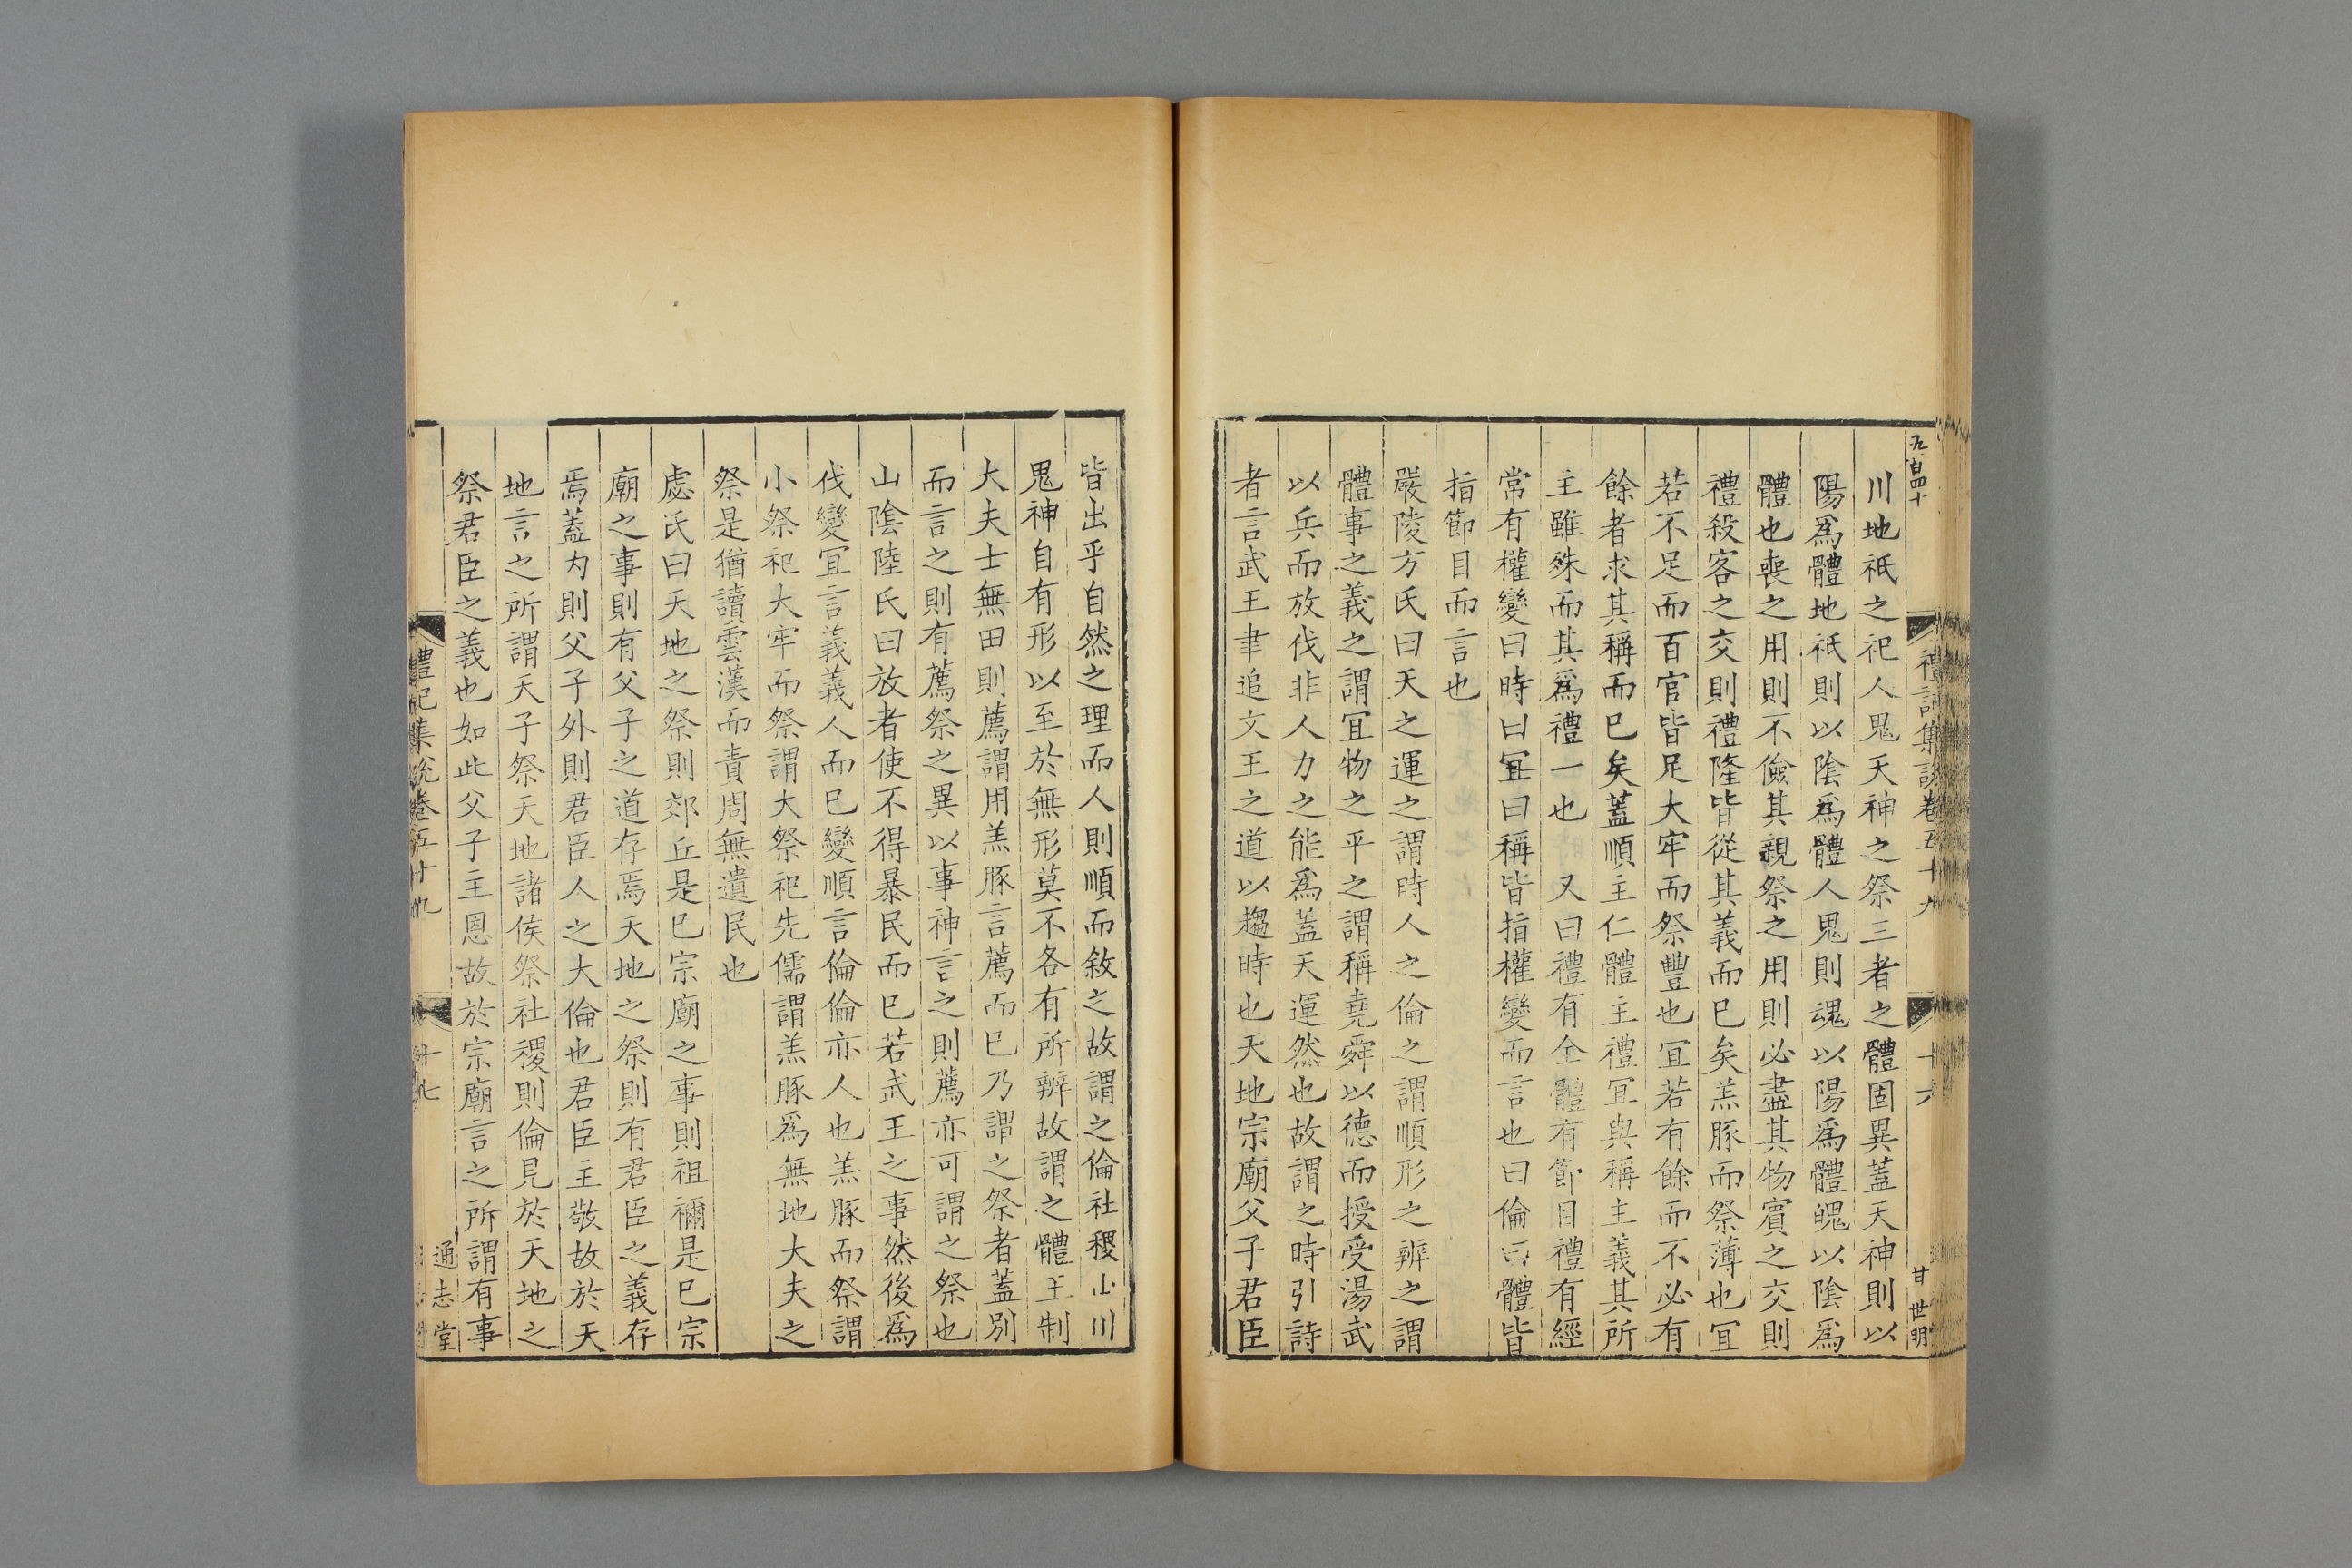 五百四十
禮記集說卷五十九
十六
甘世明
川地祇之祀人鬼天神之祭三者之體固異蓋天神則以
陽爲體地祇則以陰爲體人鬼則魂以陽爲體魄以陰爲
體也喪之用則不儉其親祭之用則必盡其物賓之交則
禮殺客之交則禮隆皆從其義而已矣羔豚而祭薄也宜
若不足而百官皆足大牢而祭豐也宜若有餘而不必有
餘者求其稱而已矣蓋順主仁體主禮宜與稱主義其所
主雖殊而其爲禮一也 又曰禮有全體有節目禮有經
常有權變曰時曰宜曰稱皆指權變而言也曰倫曰體皆
指節目而言也
嚴陵方氏曰天之運之謂時人之倫之謂順形之辨之謂
體事之義之謂宜物之平之謂稱堯舜以德而授受湯武
以兵而放伐非人力之能爲蓋天運然也故謂之時引詩
者言武王聿追文王之道以趨時也天地宗廟父子君臣
皆出乎自然之理而人則順而敘之故謂之倫社稷山川
鬼神自有形以至於無形莫不各有所辨故謂之體王制
大夫士無田則薦謂用羔豚言薦而已乃謂之祭者蓋別
而言之則有薦祭之異以事神言之則薦亦可謂之祭也
山陰陸氏曰放者使不得暴民而已若武王之事然後爲
伐變宜言義義人而已變順言倫倫亦人也羔豚而祭謂
小祭祀大牢而祭謂大祭祀先儒謂羔豚爲無地大夫之
祭是猶讀雲漢而責周無遺民也
慮氏曰天地之祭則郊丘是已宗廟之事則祖禰是已宗
廟之事則有父子之道存焉天地之祭則有君臣之義存
焉蓋內則父子外則君臣人之大倫也君臣主敬故於天
地言之所謂天子祭天地諸侯祭社稷則倫見於天地之
祭君臣之義也如此父子主恩故於宗廟言之所謂有事
禮記集說卷五十九
十七
通志堂